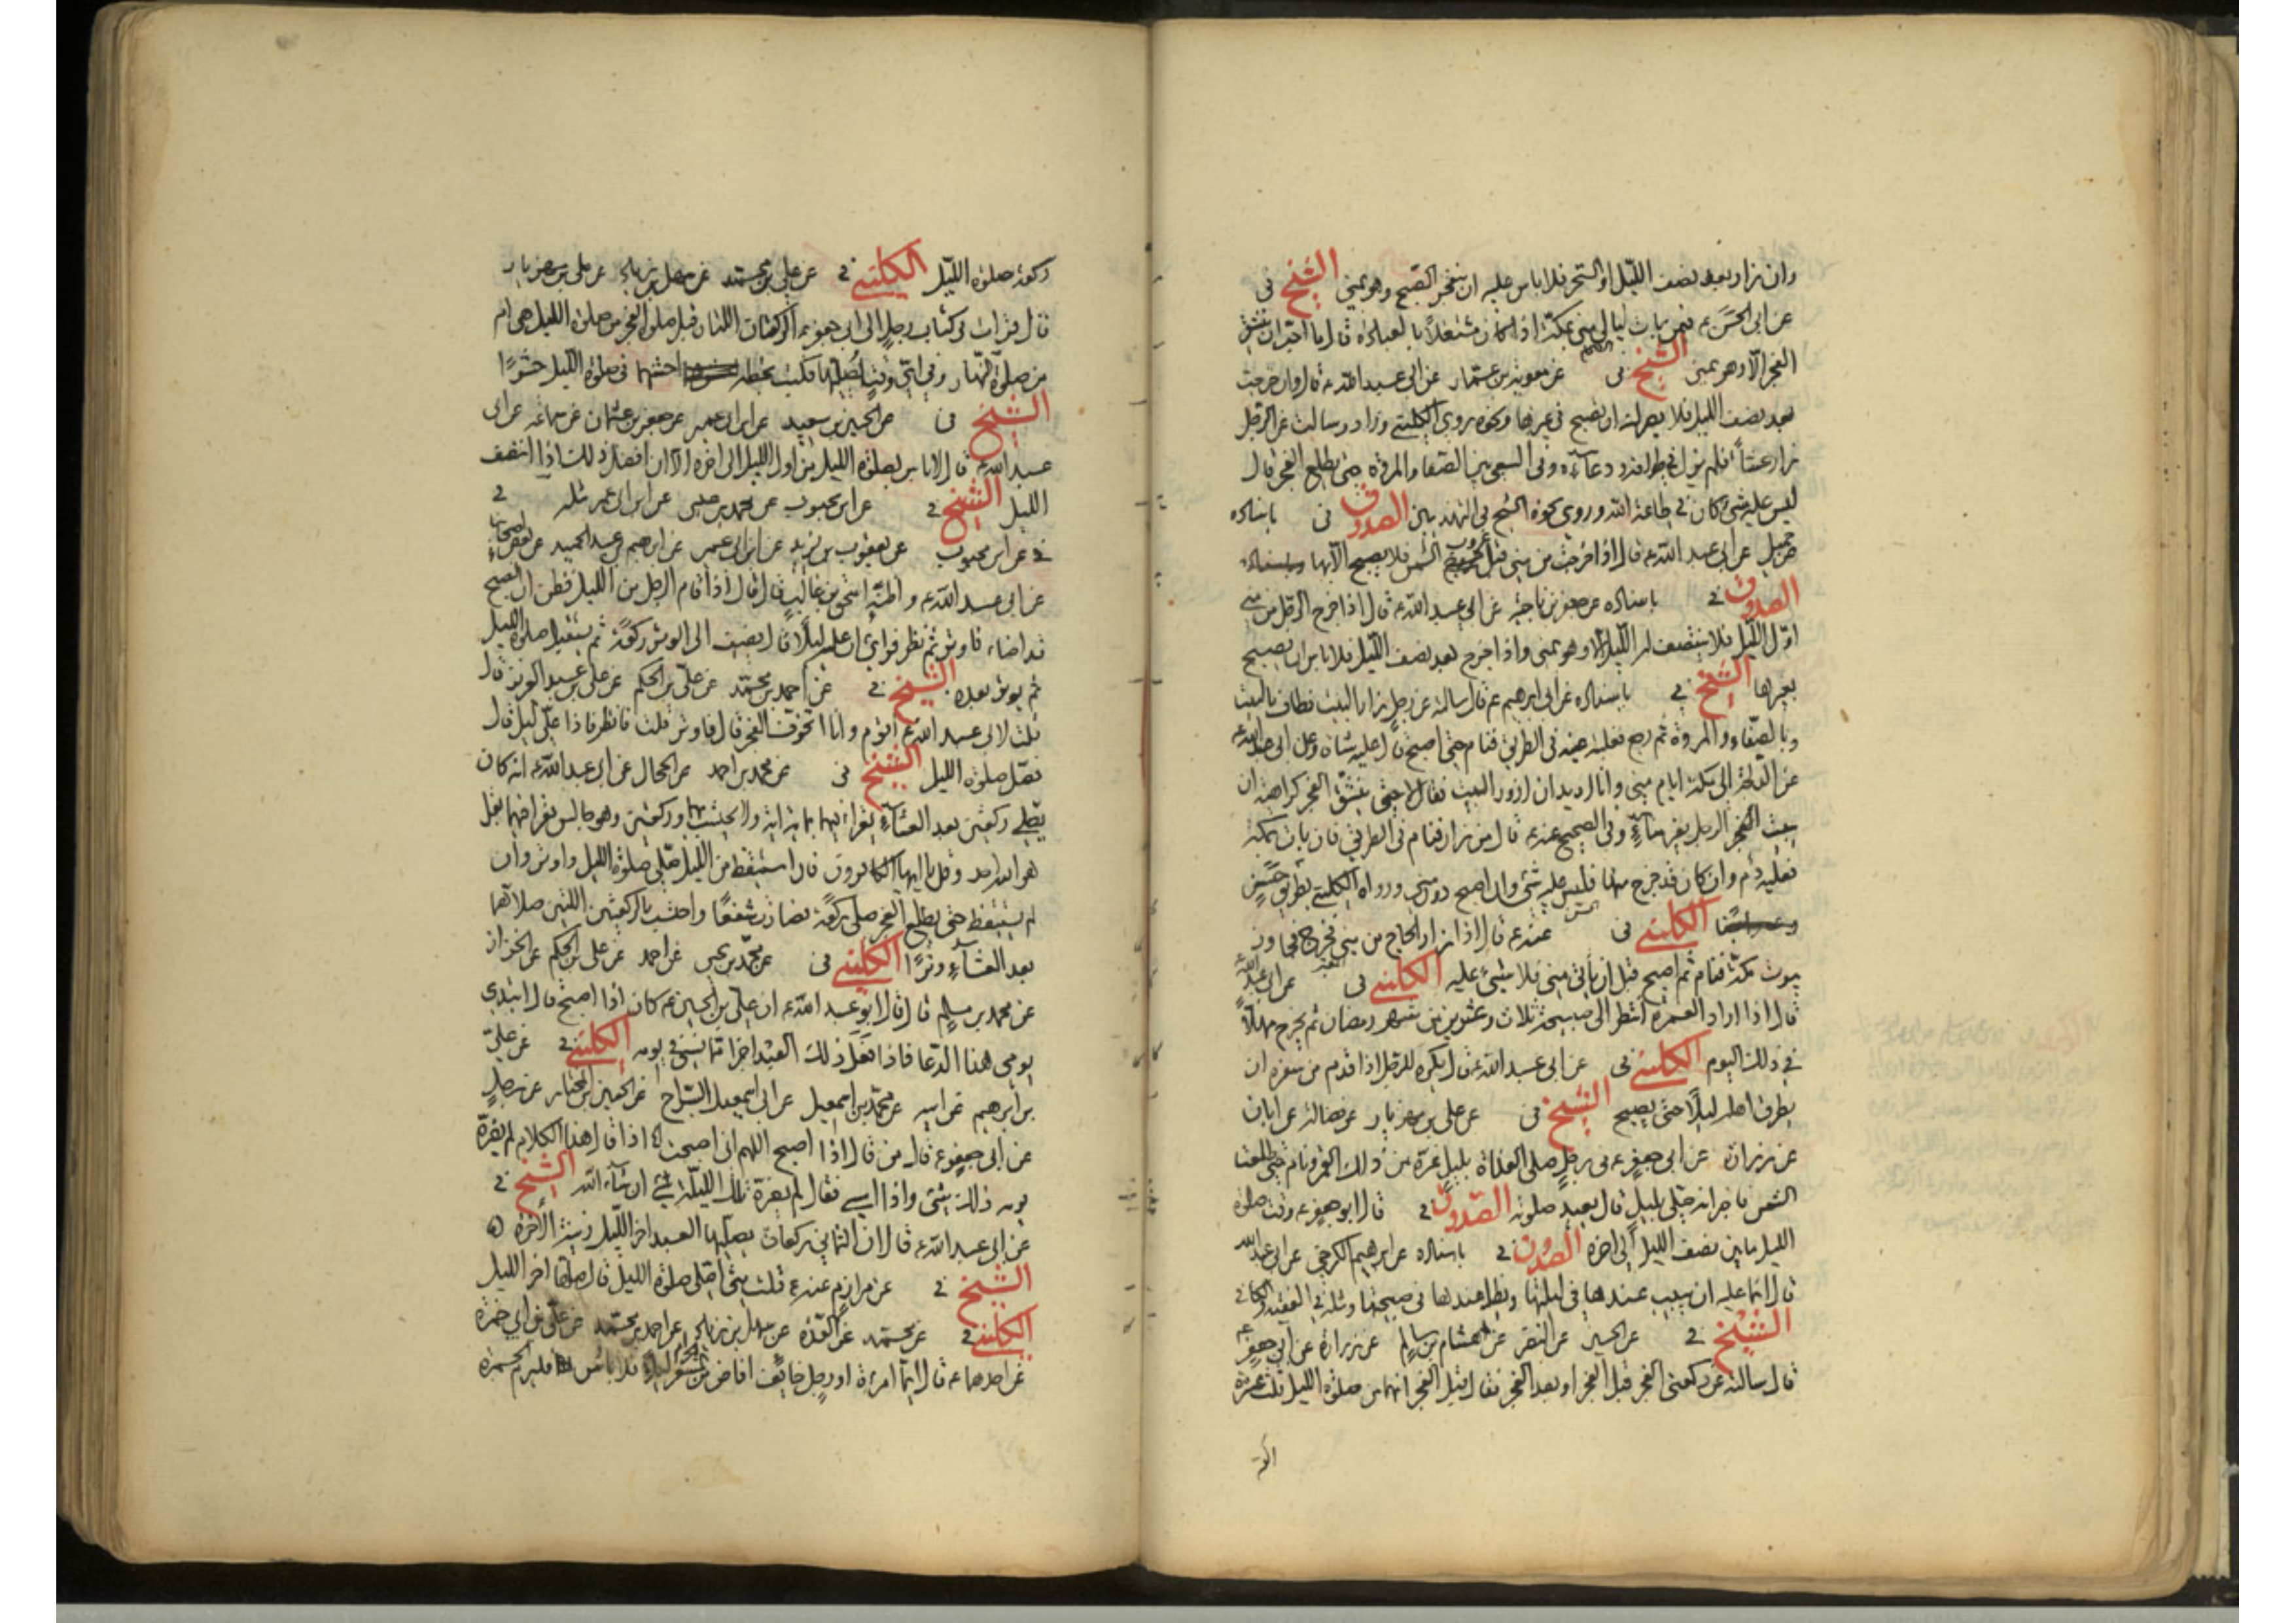 وان زار بعد نصف الليل او السحر فلا باس عليه ان ينفجر الصبح وهو بمنى الشيخ فى
عن ابى الحسن ع فيمن بات ليالى منى بمكة اذا كان مشتغلاً بالعبادة قال ما احب ان ينشق
الفجر الا وهو بمنى الشيخ فى عن معوية بن عمار عن ابى عبد الله ع قال وان خرجت
بعد نصف الليل فلا يضرك ان تصبح فى غيرها ونحوه روى الكلينى وزاد وسالت عن الرجل
زار عشاءً فلم يزل فى طوافه ودعائه وفى السعى بين الصفا والمروة حتى يطلع الفجر قال
ليس عليه شئ كان فى طاعة الله وروى نحوه الشيخ فى التهذيبين الصدوق فى باسناده
عن جميل عن ابى عبد الله ع قال اذا خرجت من منى قبل غروب الشمس فلا تصبح الا بها
الصدوق فى باسناده عن جعفر بن ناجية عن ابى عبد الله ع قال اذا خرج الرجل من منى
اول الليل فلا ينتصف له الليل الا وهو بمنى واذا خرج بعد نصف الليل فلا باس ان يصبح
بغيرها الشيخ فى باسناده عن ابى ابرهيم ع قال سالته عن رجل زار البيت فطاف بالبيت
وبالصفا والمروة ثم رجع فغلبته عينه فى الطريق فنام حتى اصبح قال عليه شاة وعن ابى عبد الله ع
عن الدلجة الى مكة ايام منى وانا اريد ان ازور البيت فقال لا حتى ينشق الفجر كراهية ان
يبيت الرجل بغير منى وفى الصحيح عنه ع قال من زار فنام فى الطريق فان بات بمكة
فعليه دم وان كان قد خرج منها فليس عليه شئ وان اصبح دون منى ورواه الكلينى بطريق حسن
الكلينى فى عنه ع قال اذا زار الحاج من منى فخرج من مكة فجاوز
بيوت مكة فنام ثم اصبح قبل ان ياتى منى فلا شئ عليه الكلينى فى عن ابى عبد الله
قال اذا اراد العمرة انتظر الى صبيحة ثلاث وعشرين من شهر رمضان ثم يخرج مهلاً
فى ذلك اليوم الكلينى فى عن ابى عبد الله ع قال يكره للرجل اذا قدم من سفره ان
يطرق اهله ليلاً حتى يصبح الشيخ فى عن على بن مهزيار عن فضالة عن ابان
عن زرارة عن ابى جعفر ع فى رجل صلى الغداة بليل غره من ذلك القمر ونام حتى طلعت
الشمس فاخبر انه صلى بليل قال يعيد صلوته الصدوق فى قال ابو جعفر ع وقت صلوة
الليل ما بين نصف الليل الى اخره الصدوق فى باسناده عن ابرهيم الكرخى عن ابى عبد الله
قال انما عليه ان يبيت عندها فى ليلتها ويظل عندها فى صبيحتها ومثله فى الفقيه
الشيخ فى عن الحسين عن النضر عن هشام بن سالم عن زرارة عن ابى جعفر ع
قال سالته عن ركعتى الفجر قبل الفجر او بعد الفجر فقال قبل الفجر انهما من صلوة الليل ثلث عشرة
ركعة صلوة الليل الكلينى فى عن على بن محمد عن سهل بن زياد عن على بن مهزيار
قال قرات فى كتاب رجل الى ابى جعفر ع الركعتان اللتان قبل صلوة الفجر من صلوة الليل هى ام
من صلوة النهار وفى اى وقت اصليها فكتب بخطه احشها فى صلوة الليل حشوًا
الشيخ فى عن الحسين بن سعيد عن ابن ابى عمير عن جعفر بن عثمان عن سماعة عن ابى
عبد الله ع قال لا باس بصلوة الليل من اول الليل الى اخره الا ان افضل ذلك اذا انتصف
الليل الشيخ فى عن ابن محبوب عن محمد بن عيسى عن ابن ابى عمير مثله فى
فى عن ابن محبوب عن يعقوب بن يزيد عن ابن ابى عمير عن ابرهيم بن عبد الحميد عن بعض اصحابنا
عن ابى عبد الله ع واظنه اسحق بن غالب قال قال اذا قام الرجل من الليل فظن ان الصبح
قد اضاء فاوتر ثم نظر فراى ان عليه ليلاً قال يضيف الى الوتر ركعة ثم يستقبل صلوة الليل
ثم يوتر بعده الشيخ فى عن احمد بن محمد عن على بن الحكم عن على بن عبد العزيز قال
قلت لابى عبد الله ع اقوم وانا اتخوف الفجر قال فاوتر قلت فانظر فاذا على ليل قال
فصل صلوة الليل الشيخ فى عن محمد بن احمد عن الحجال عن ابى عبد الله ع انه كان
يصلى ركعتين بعد العشاء يقرا فيهما بماية اية ولا يحتسب بهما وركعتين وهو جالس يقرا فيهما بقل
هو الله احد وقل يا ايها الكافرون فان استيقظ من الليل صلى صلوة الليل واوتر وان
لم يستيقظ حتى يطلع الفجر صلى ركعة فصارت شفعًا واحتسب بالركعتين اللتين صلاهما
بعد العشاء وترًا الكلينى فى عن محمد بن يحيى عن احمد عن على بن الحكم عن الخزاز
عن محمد بن مسلم قال قال ابو عبد الله ع ان على بن الحسين ع كان اذا اصبح قال ابتدى
يومى هذا الدعا فاذا فعل ذلك العبد اجزا مما نسى فى يومه الكلينى فى عن على
بن ابرهيم عن ابيه عن محمد بن اسمعيل عن ابى اسمعيل السراج عن الحسين بن المختار عن رجل
عن ابى جعفر ع قال من قال اذا اصبح اللهم انى اصبحت اذا قال هذا الكلام لم يضره
يومه ذلك شئ واذا امسى فقال لم يضره تلك الليلة شئ ان شاء الله الشيخ فى
عن ابى عبد الله ع قال ان الثمانى ركعات يصليها العبد اخر الليل زينة الاخرة
الشيخ فى عن مرازم عنه ع قلت متى اصلى صلوة الليل قال صلها اخر الليل
الكلينى فى عن محمد عن العدة عن سهل بن زياد عن احمد بن محمد عن على بن ابى حمزة
عن احدهما ع قال ايما امراة او رجل خائف افاض من المشعر الحرام ليلاً فلا باس فليرم الجمرة